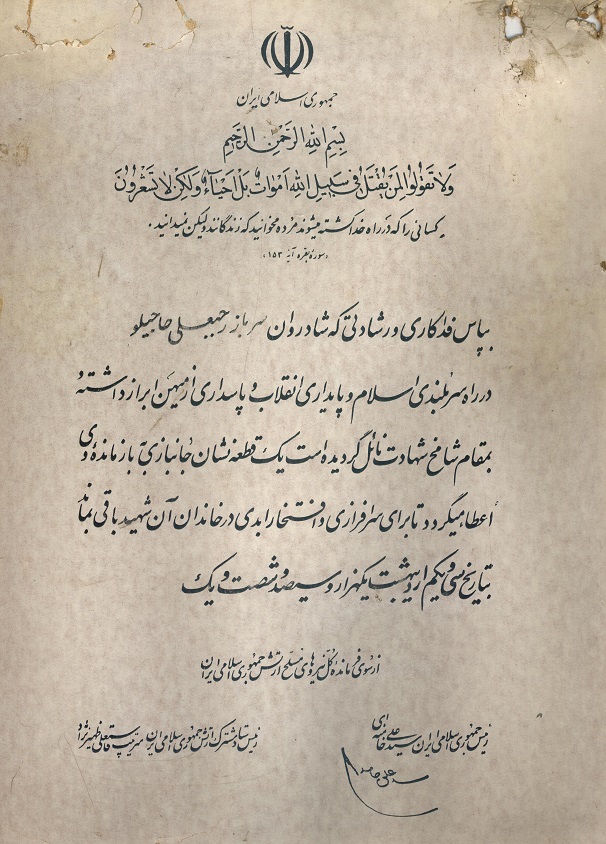 جمهوری اسلامی ایران
بِسْمِ اللهِ الرَّحْمٰنِ الرَّحِیْمِ
وَلَا تَقُولُوا لِمَنْ يُقْتَلُ فِي سَبِيلِ اللهِ أَمْوَاتٌ بَلْ أَحْيَاءٌ وَلَكِنْ لَا تَشْعُرُونَ
کسانی را که در راه خدا کشته میشوند مرده مخوانید که زندگانند ولیکن نمیدانید.
«سوره بقره آیه ۱۵۳»
بپاس فداکاری و رشادتی که شادروان سرباز رجبعلی حاجیلو
در راه سربلندی اسلام و پایداری انقلاب و پاسداری از میهن ابراز داشته و
بمقام شامخ شهادت نائل گردیده است یک قطعه نشان جانبازی به بازمانده وی
اعطا میگردد تا برای سرافرازی و افتخار ابدی در خاندان آن شهید باقی بماند
بتاریخ سی و یکم اردیبهشت یکهزار و سیصد و شصت و یک
از سوی فرمانده کل نیروهای مسلح ارتش جمهوری اسلامی ایران
رئیس جمهوری اسلامی ایران سید علی خامنه ای
رئیس ستاد مشترک ارتش جمهوری اسلامی ایران سرتیپ قاسمعلی ظهیرنژاد